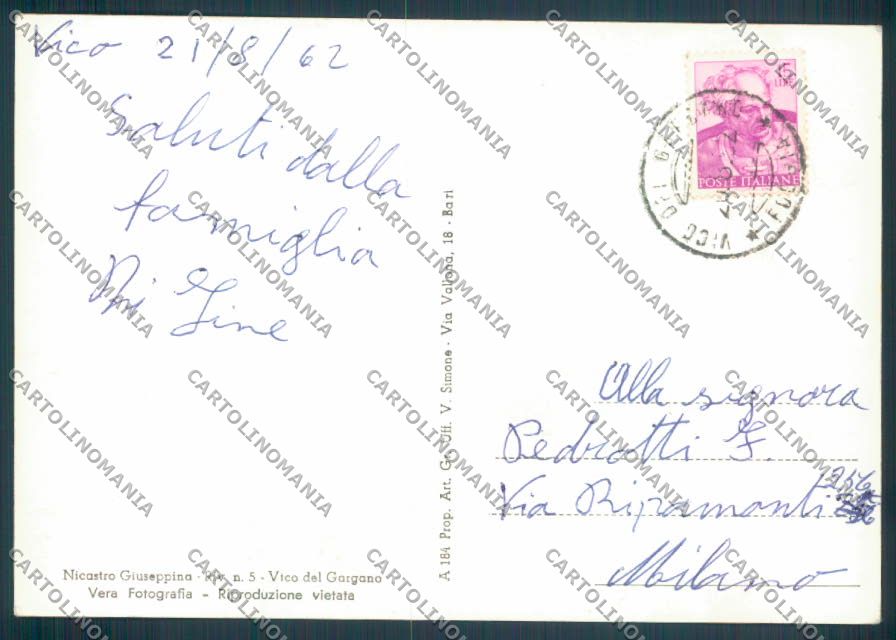 Vico 21/8/62
Saluti dalla
famiglia
Di Fine
Nicastro Giuseppina - Riv. n. 5 - Vico del Gargano
Vera Fotografia - Riproduzione vietata
A 184 Prop. Art. Gr. Uff. V. Simone - Via Vallona, 18 - Bari
POSTE ITALIANE
VICO DEL GARGANO
FOGGIA
Alla signora
Pedrotti F.
Via Ripamonti 256
Milano
CARTOLINOMANIA